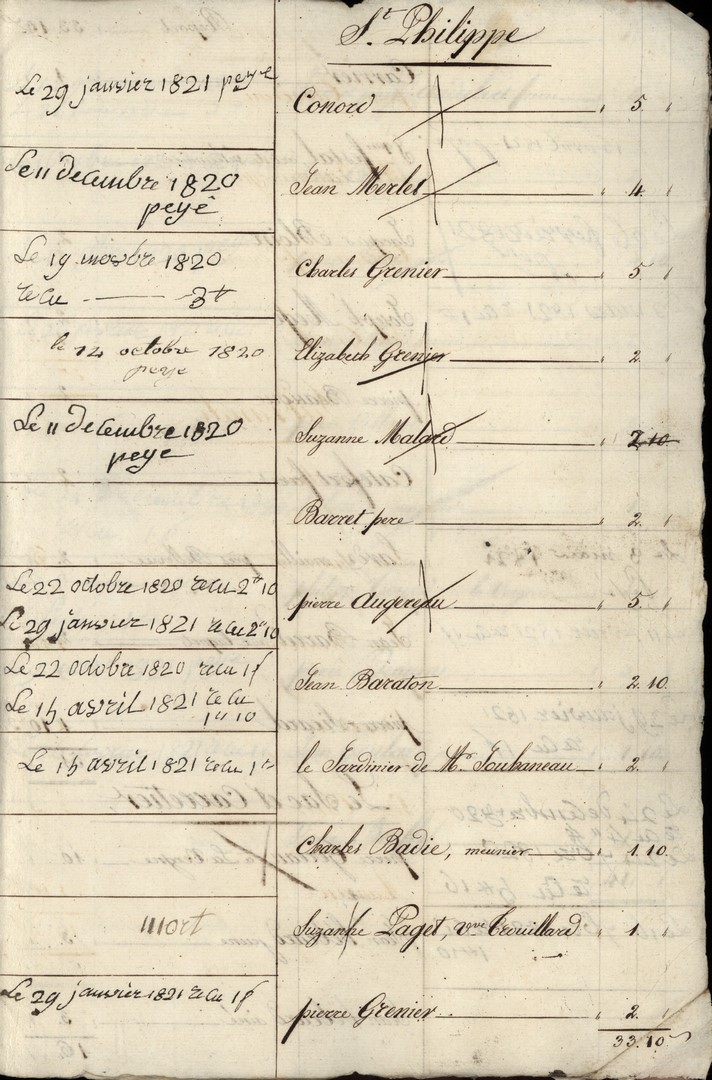 St. Philippe
Le 29 janvier 1821 peyé
Conord 5.
Le 11 decembre 1820
peyé
Jean Merlet 4.
Le 19 
1820
recu 3tt
Charles Grenier 5.
le 14 octobre 1820
peye
Elizabeth Grenier 2.
Le 11 decembre 1820
peye
Suzanne Malard 2.10
Barret pere 2.
Le 22 octobre 1820 recu 2tt 10
Le 29 janvier 1821 recu 2tt 10
pierre Augereau 5.
Le 22 octobre 1820 recu 1f
Le 15 avril 1821 recu
1tt 10
Jean Baraton 2.10.
Le 15 avril 1821 recu 1tt
le Jardinier de Mr. Joubaneau 2.
Charles Badie, meunier 1.10.
mort
Suzanne Paget, vve Trouillard 1.
Le 29 janvier 1821 recu 1f
pierre Grenier 2.
33.10